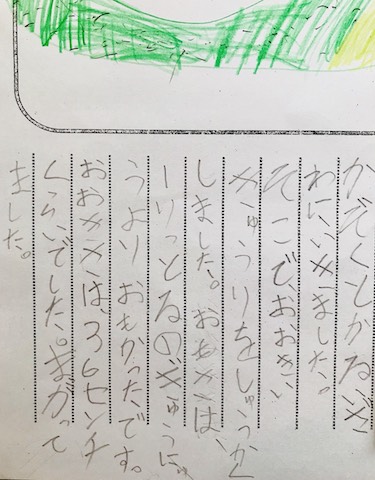 かぞくとかるいざ
わにいきました。
そこで、おおきい
きゅうりをしゅうかく
しました。おもさは、
一りっとるのぎゅうにゅ
うよりおもかったです。
おおきさは、36センチ
くらいでした。まがって
ました。